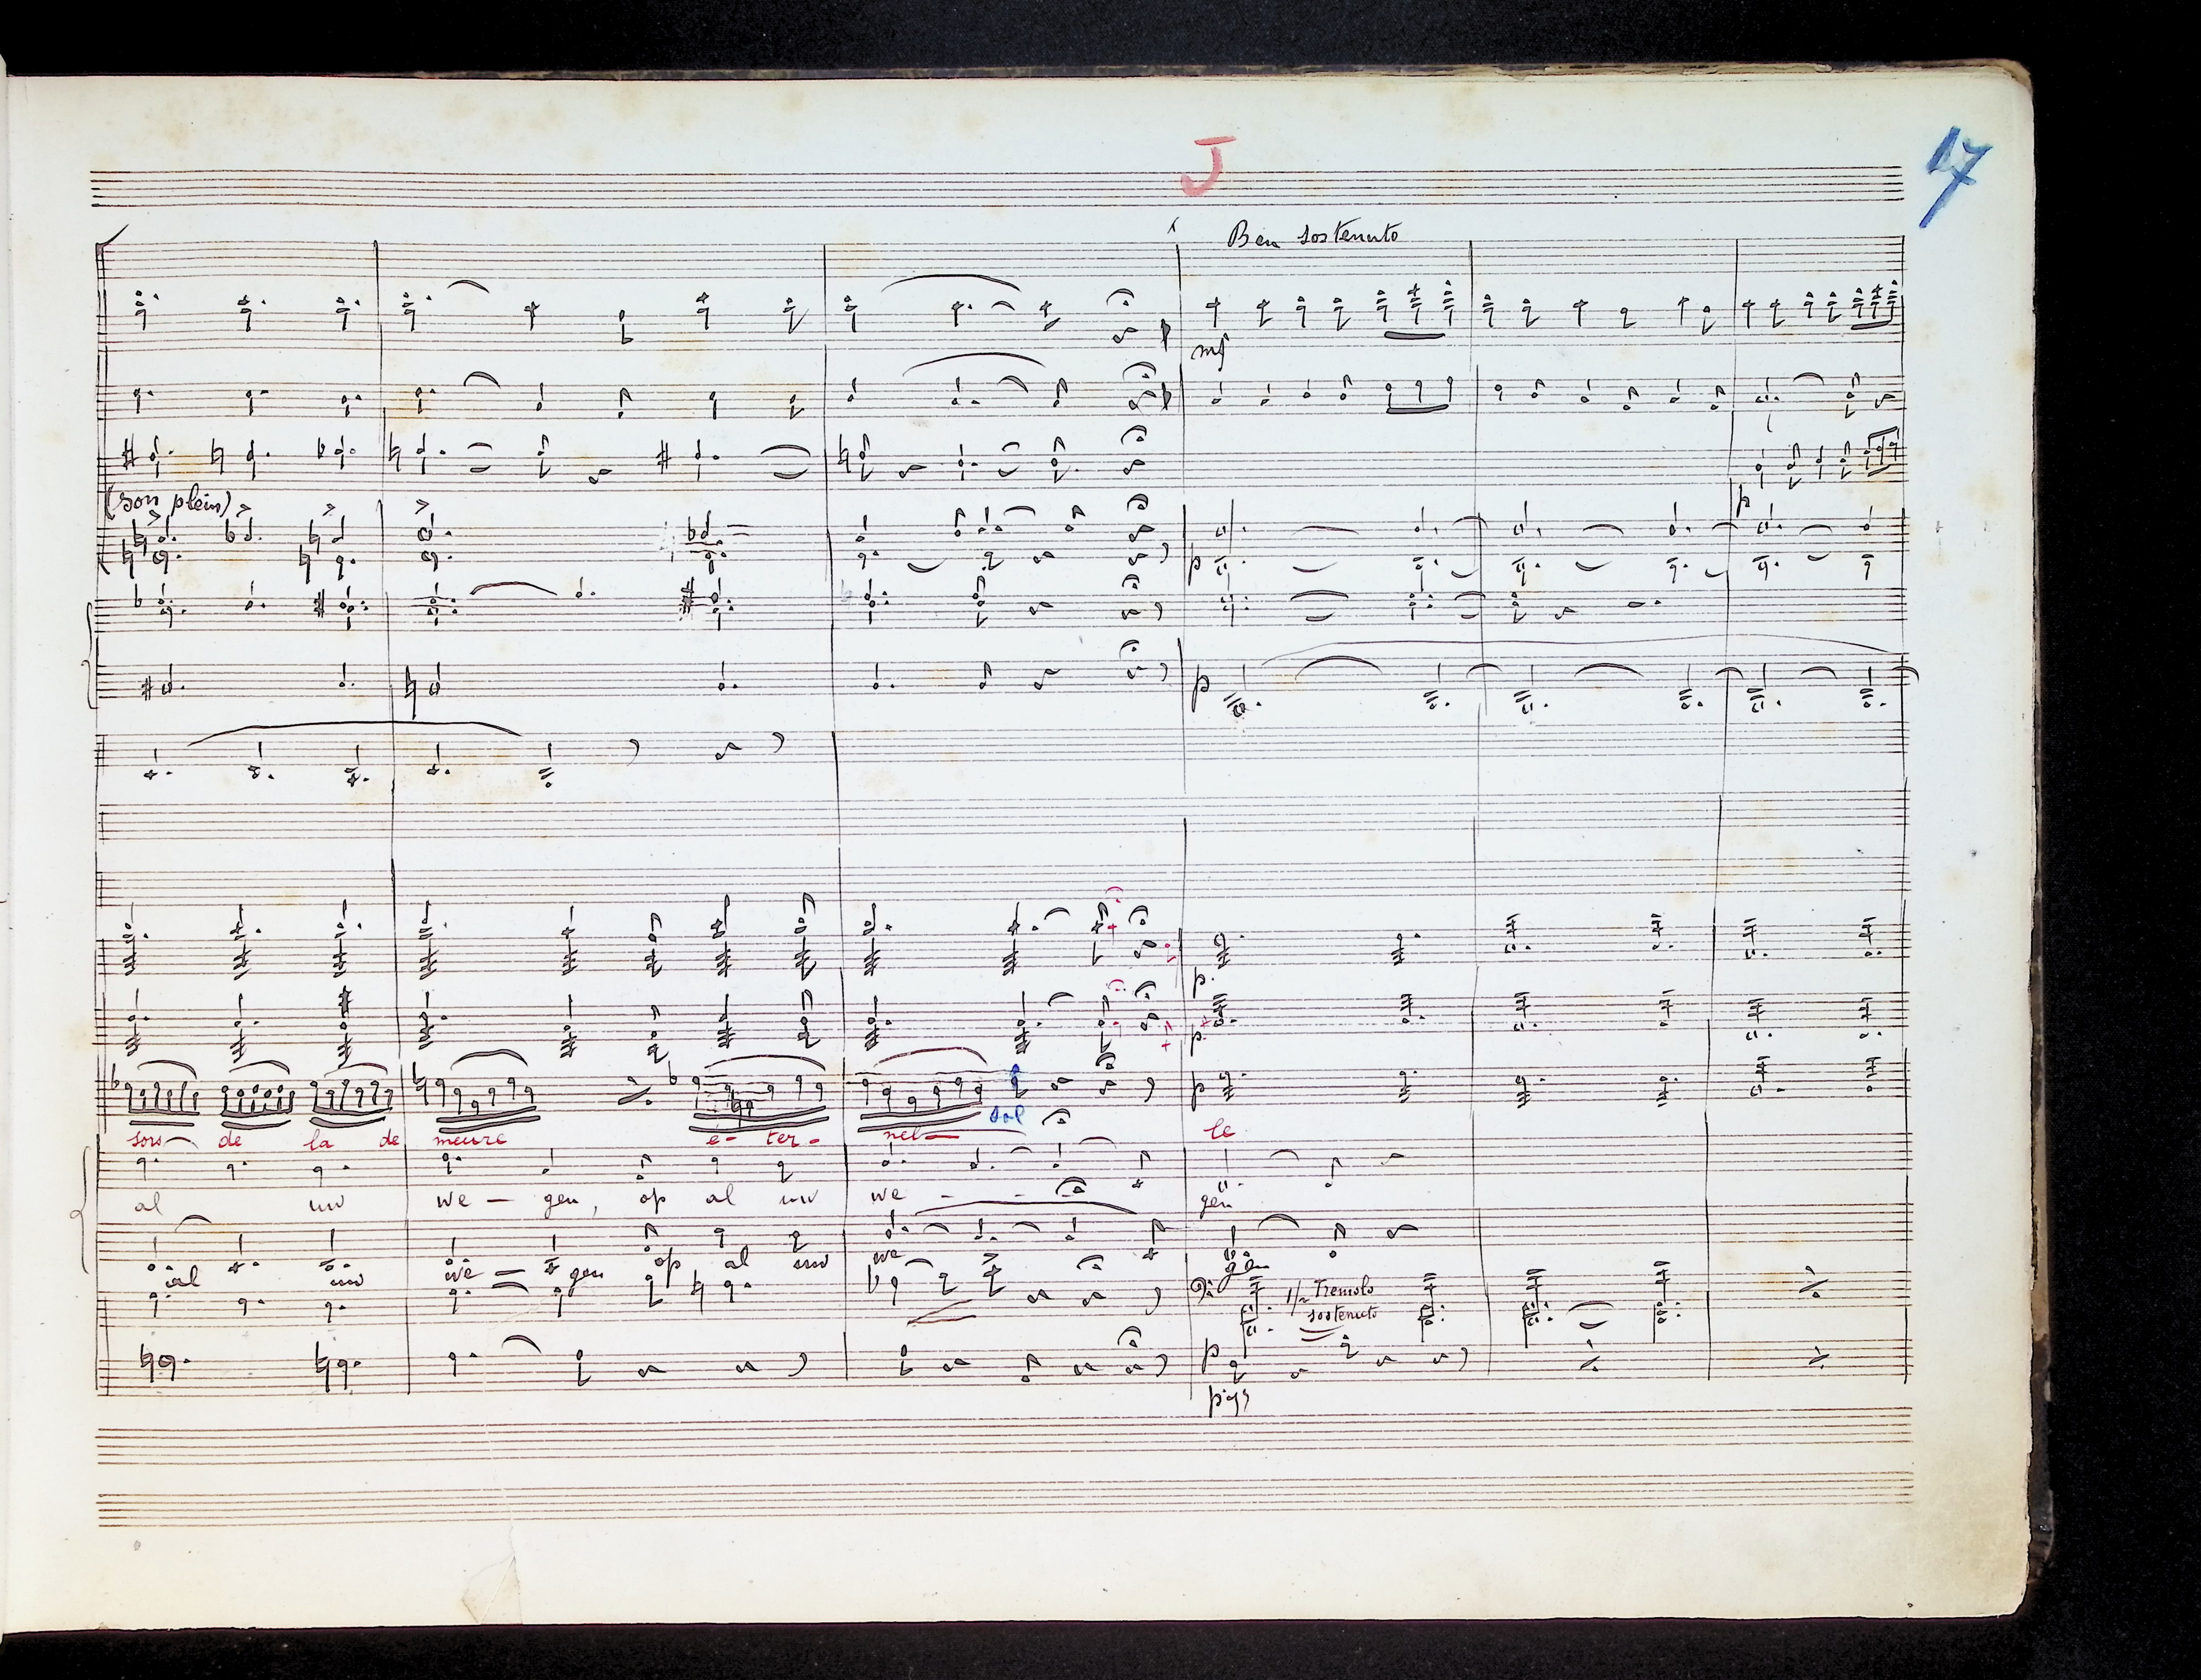 J
17
Ben sostenuto
mf
(son plein)
p
p
p
p
p
p
sol
sors de la de meure e - ter - nel - le
al uw we - gen, op al uw we - - gen
al uw we - gen op al uw we gen
1/2 Tremolo
sostenuto
p